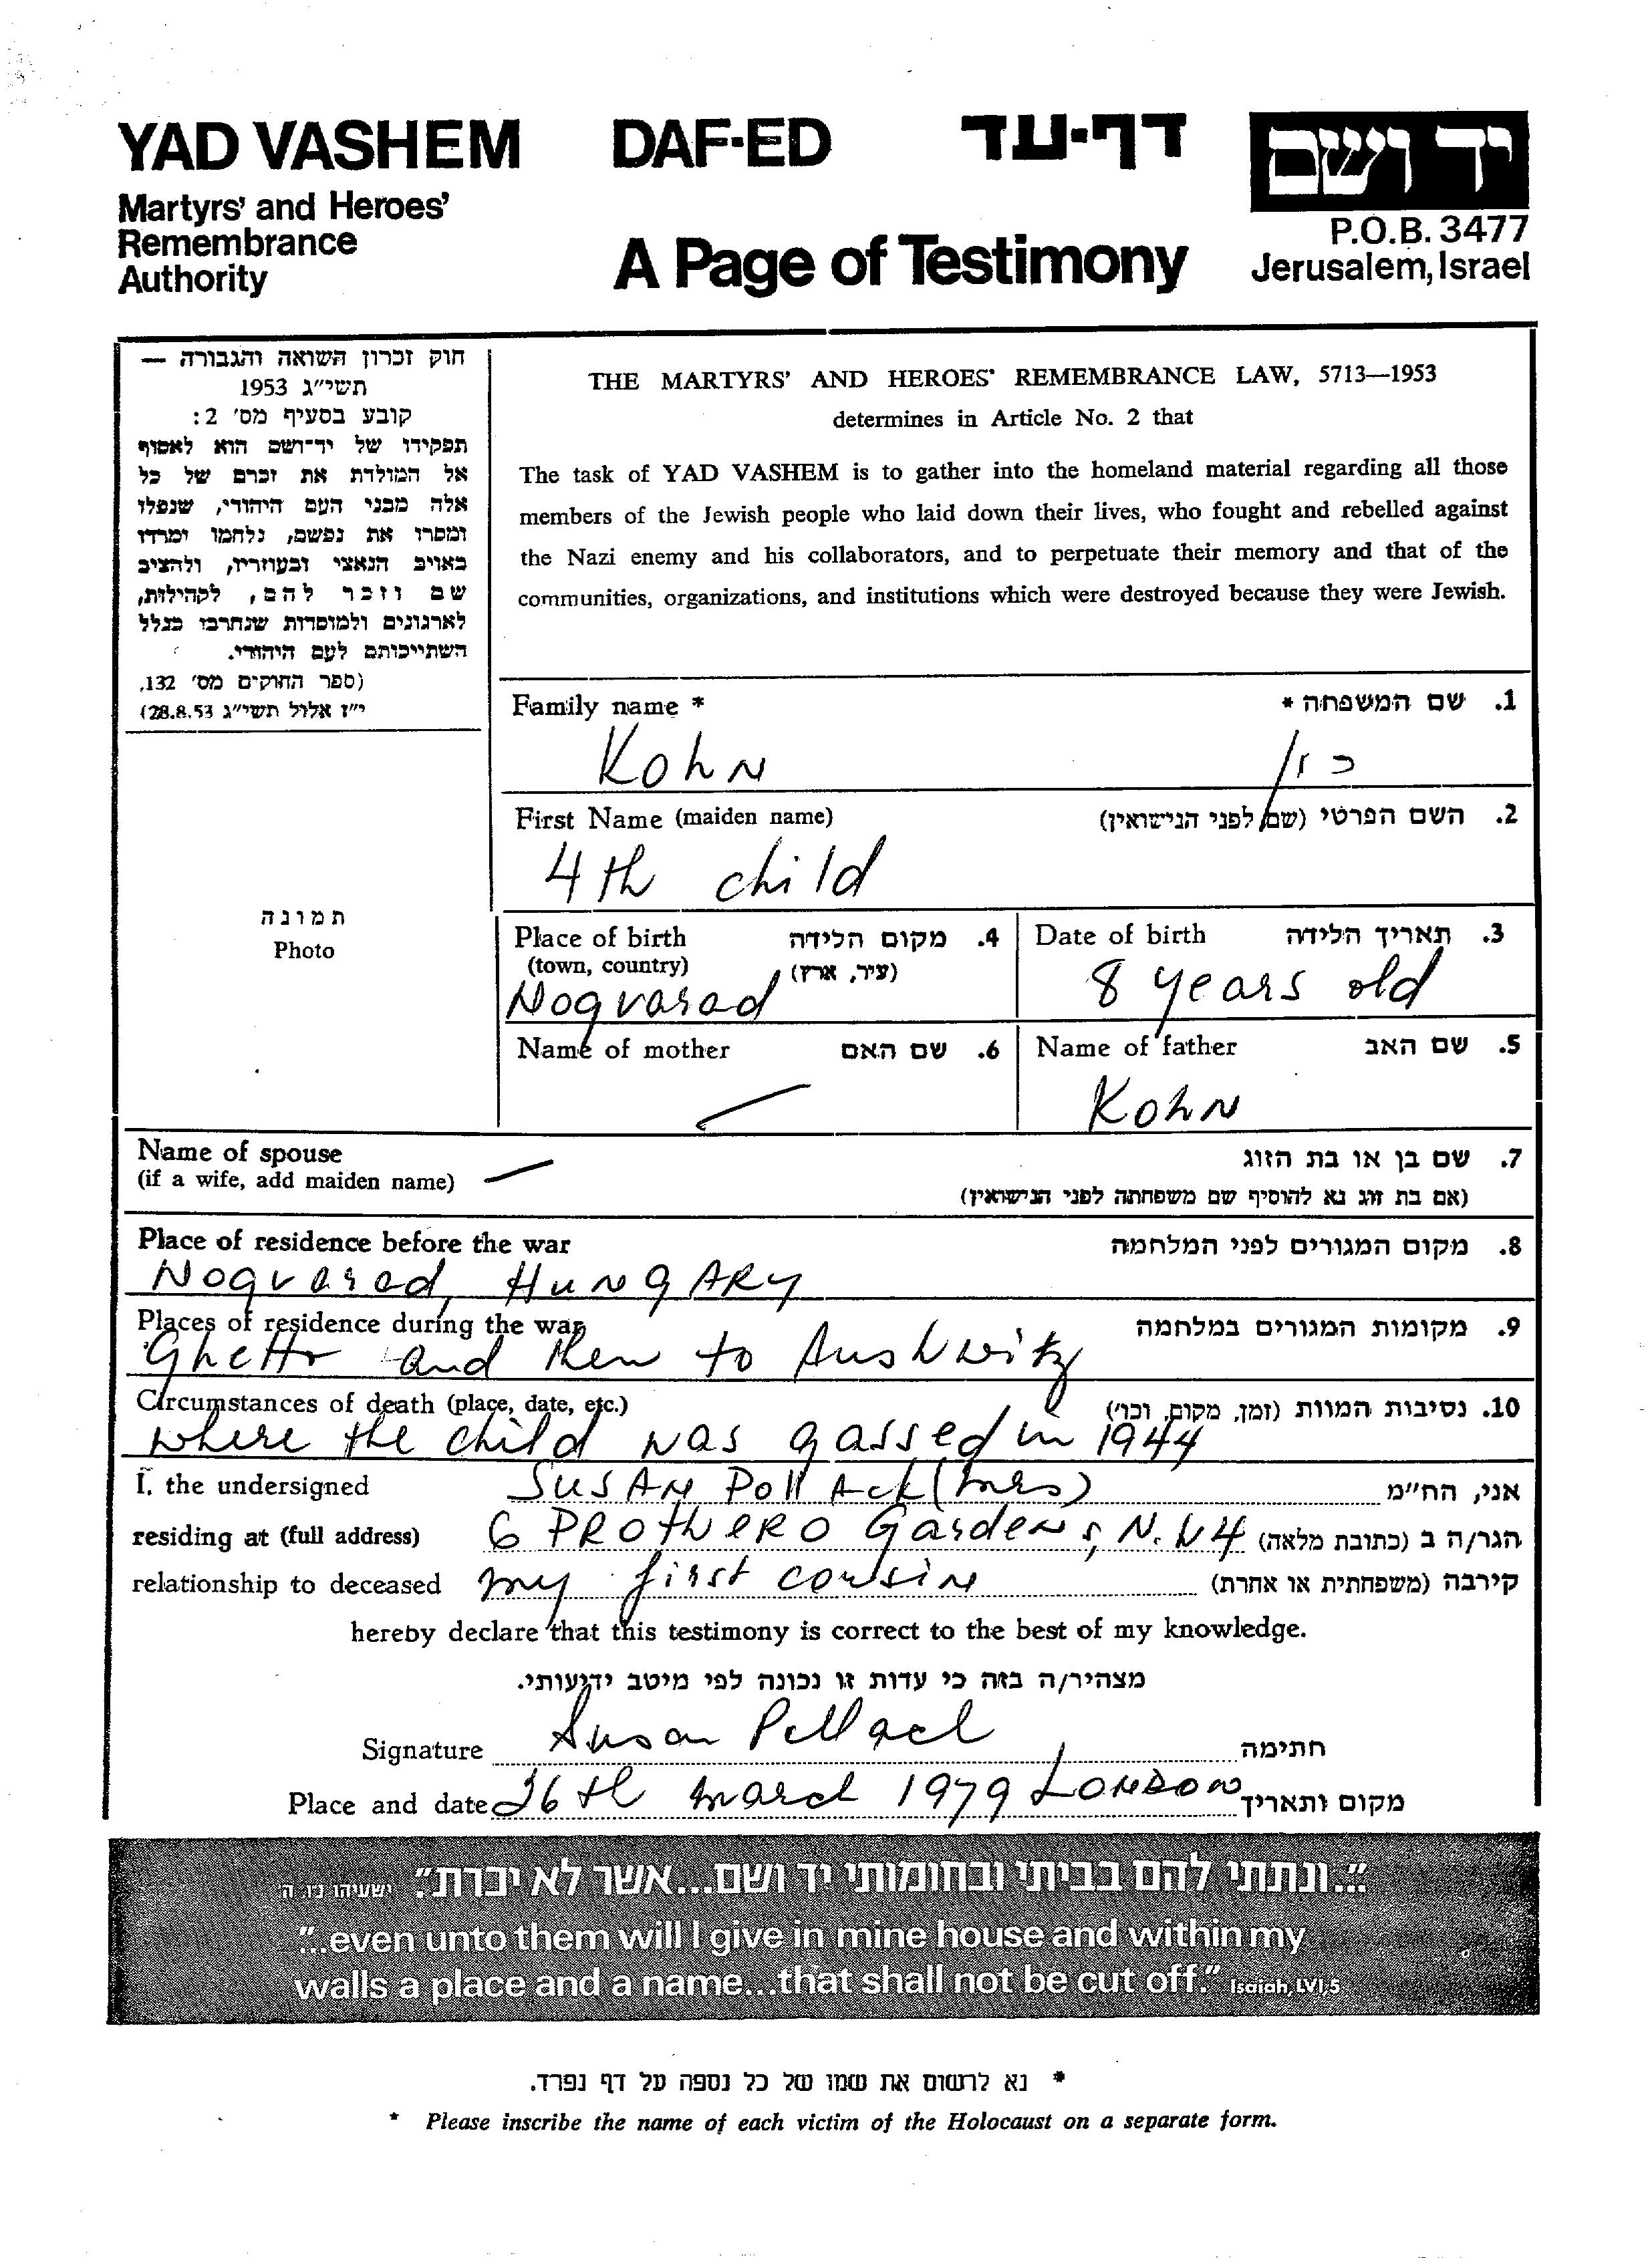 YAD VASHEM
DAF-ED
דף-עד
יד ושם
Martyrs' and Heroes'
Remembrance
Authority
A Page of Testimony
P.O.B. 3477
Jerusalem, Israel
חוק זכרון השואה והגבורה —
תשי"ג 1953
קובע בסעיף מס' 2:
תפקידו של יד־ושם הוא לאסוף
אל המולדת את זכרם של כל
אלה מבני העם היהודי, שנפלו
ומסרו את נפשם, נלחמו ומרדו
באויב הנאצי ובעוזריו, ולהציב
שם וזכר להם, לקהילות,
לארגונים ולמוסדות שנחרבו בגלל
השתייכותם לעם היהודי.
(ספר החוקים מס' 132,
י"ז אלול תשי"ג 28.8.53)
THE MARTYRS' AND HEROES' REMEMBRANCE LAW, 5713—1953
determines in Article No. 2 that
The task of YAD VASHEM is to gather into the homeland material regarding all those
members of the Jewish people who laid down their lives, who fought and rebelled against
the Nazi enemy and his collaborators, and to perpetuate their memory and that of the
communities, organizations, and institutions which were destroyed because they were Jewish.
Family name *
1. שם המשפחה *
Kohn
כון
First Name (maiden name)
2. השם הפרטי (שם לפני הנישואין)
4th child
תמונה
Photo
Place of birth
4. מקום הלידה
(town, country)
(עיר, ארץ)
Nogvarad
Date of birth
3. תאריך הלידה
8 years old
Name of mother
6. שם האם
Name of father
5. שם האב
Kohn
Name of spouse
7. שם בן או בת הזוג
(if a wife, add maiden name)
(אם בת זוג נא להוסיף שם משפחתה לפני הנישואין)
Place of residence before the war
8. מקום המגורים לפני המלחמה
Nogvarad, HUNGARY
Places of residence during the war
9. מקומות המגורים במלחמה
Ghetto and then to Aushwitz
Circumstances of death (place, date, etc.)
10. נסיבות המוות (זמן, מקום, וכו')
where the child was gassed in 1944
I, the undersigned SUSAN POllAck (Mrs) אני, הח"מ
residing at (full address) 6 PROthERO Gardens, N.W4 הגר/ה ב (כתובת מלאה)
relationship to deceased my first cousin קירבה (משפחתית או אחרת)
hereby declare that this testimony is correct to the best of my knowledge.
מצהיר/ה בזה כי עדות זו נכונה לפי מיטב ידיעותי.
Signature Susan Pollack חתימה
Place and date 26th march 1979 LONDON מקום ותאריך
"...ונתתי להם בביתי ובחומותי יד ושם...אשר לא יכרת." ישעיהו נ"ו ה'
"...even unto them will I give in mine house and within my
walls a place and a name...that shall not be cut off." Isaiah, LVI,5
* נא לרשום את שמו של כל נספה על דף נפרד.
* Please inscribe the name of each victim of the Holocaust on a separate form.